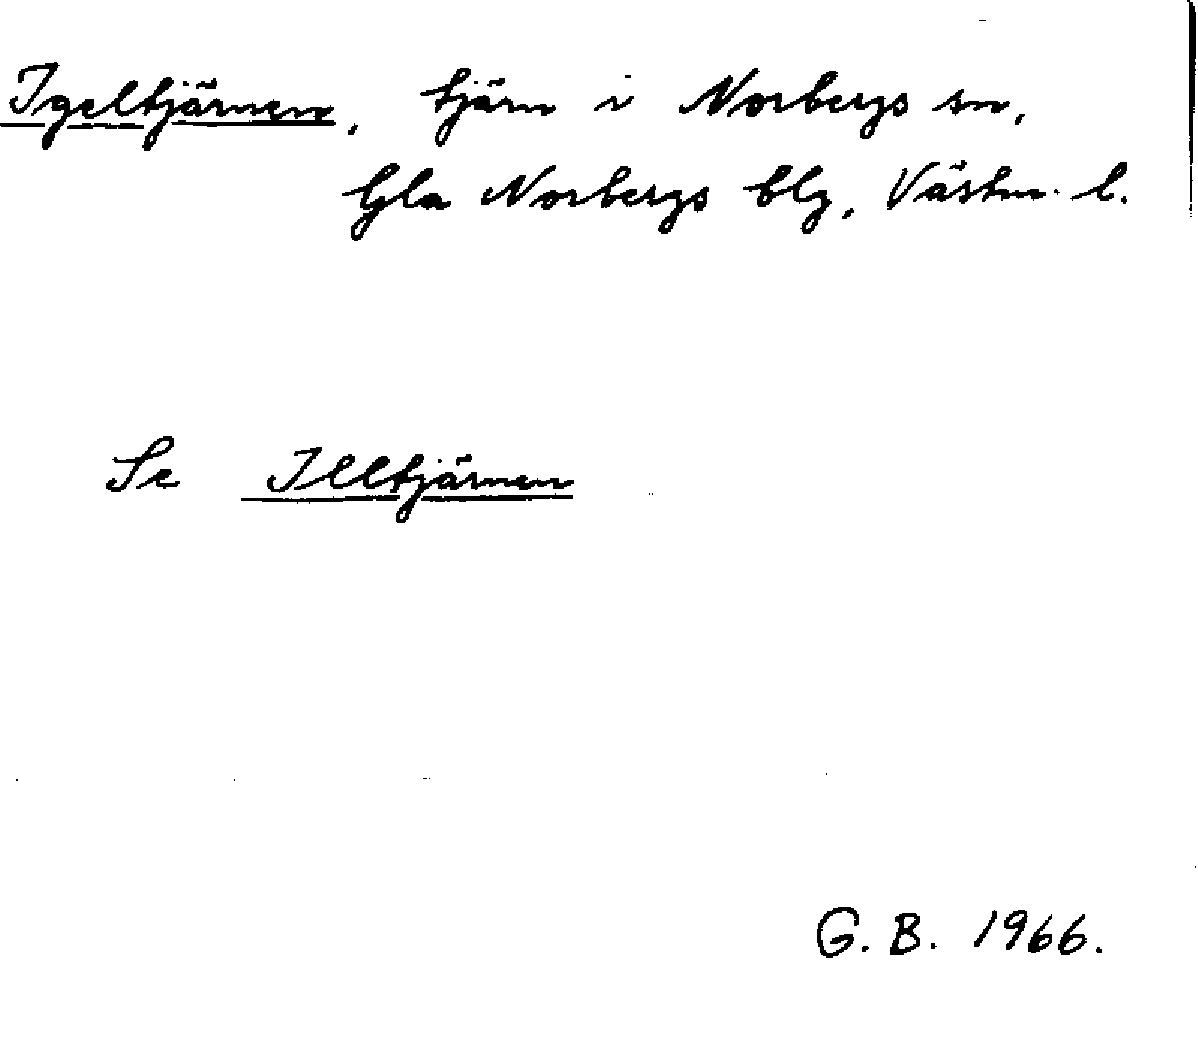 Igeltjärnen, tjärn i Norbergs sn,
Gla Norbergs blg, Västm. l.
Se Illtjärnen
G. B. 1966.